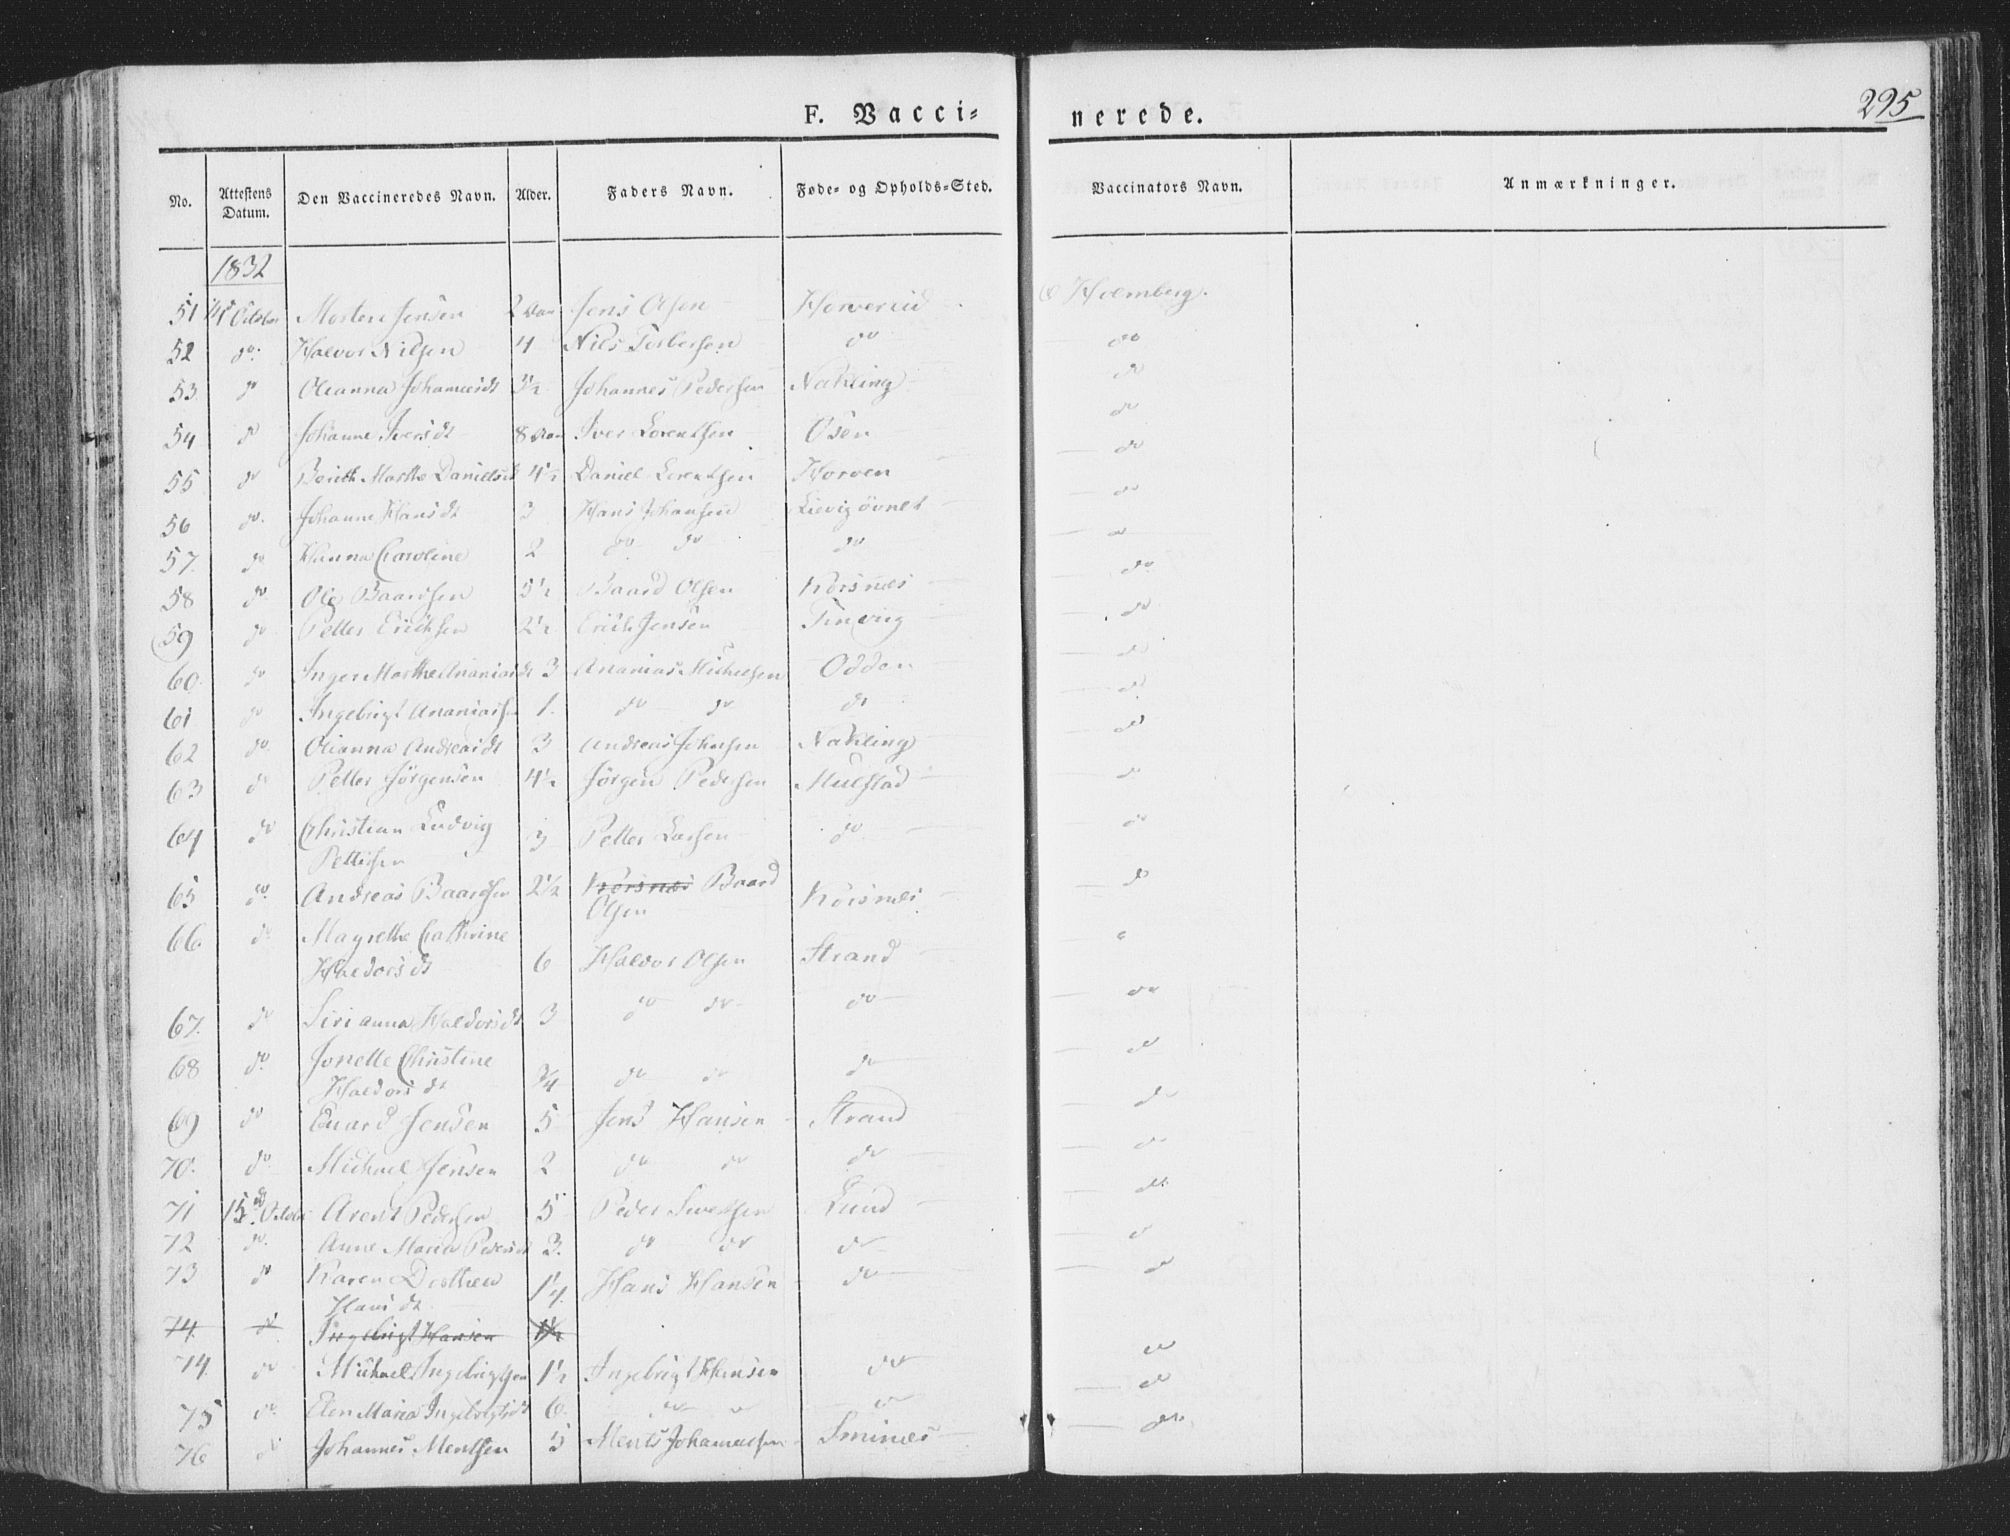 F. Vacci-
nerede.
295
No.
Attestens Datum.
Den Vaccineredes Navn.
Alder.
Faders Navn.
Føde- og Opholds-Sted.
Vaccinators Navn.
Anmærkninger.
1832
51 14 Octobr Morten Jensen 2 Aar Jens Olsen Horverud Holmberg.
52 do Haldor Nilsen 4 Nils Torbersen do do
53 do Olianna Johannesdt 3½ Johannes Pedersen Nakling do
54 do Johanne Iversdt 8 Aar Iver Lorentsen Osen do
55 do Berith Marthe Danielsdt 4½ Daniel Lorentsen Horven do
56 do Johanne Hansdt 3 Hans Johansen do
57. do Hanna Caroline 2 do do do do
58 do Ole Baardsen 5½ Baard Olsen Korsnæs do
59 do Petter Erichsen 2½ Erich Jensen Finvig do
60. do Inger Marthe Ananiasdt 3 Ananias Michelsen Odden do
61 do Ingebrigt Ananiassen 1. do do do do
62 do Olianna Andreasdt 3 Andreas Johnsen Nakling do
63 do Petter Jørgensen 4½ Jørgen Pedersen Mulstad do
64 do Christian Ludvig 3 Petter Larsen do do
Pettersen
65 do Andreas Baardsen 2½ Korsnæs Baard Korsnæs do
Olsen
66 do Magrethe Cathrine
Haldorsdt 6 Haldor Olsen Strand
67. do Sirianna Haldorsdt 3 do do do do
68 do Jonette Christine do
Haldorsdt ¾ do do do
69 do Enard Jensen 5 Jens Hansen Strand do
70. do Michael Jensen 2 do do do do
71 15de Octobr Arent Pedersen 5 Peder Sivertsen Lund do
72 do Anne Maria Pedersdt 3. do do do do
73 do Karen Dorthea 1¼ Hans Hansen do do
Hansdt
74. do Ingebrigt Hansen 1½
74. do Michael Ingebrigtsen 1½ Ingebrigt Hansen do do
75 do Elen Maria Ingebrigtsdt 6. do do do do
76 do Johannes Mentsen 5 Ments Johannessen Sminæs do